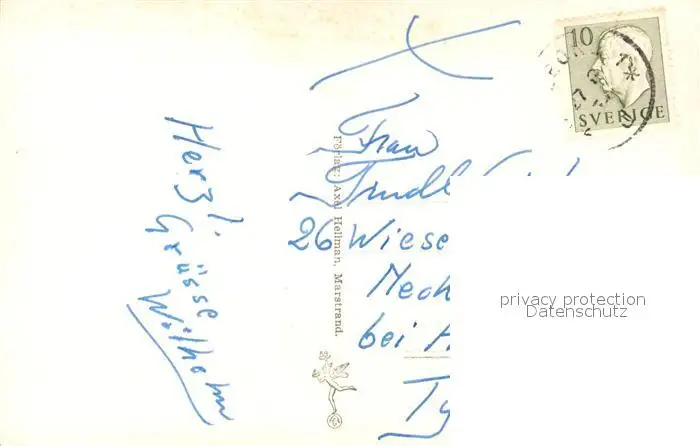 10
SVERIGE
Herzl.
Grüsse
Wilhelm
Förlag: Axel Hellman, Marstrand.
Frau
Trudl
26 Wiese
Mech
bei H
Ty
privacy protection
Datenschutz